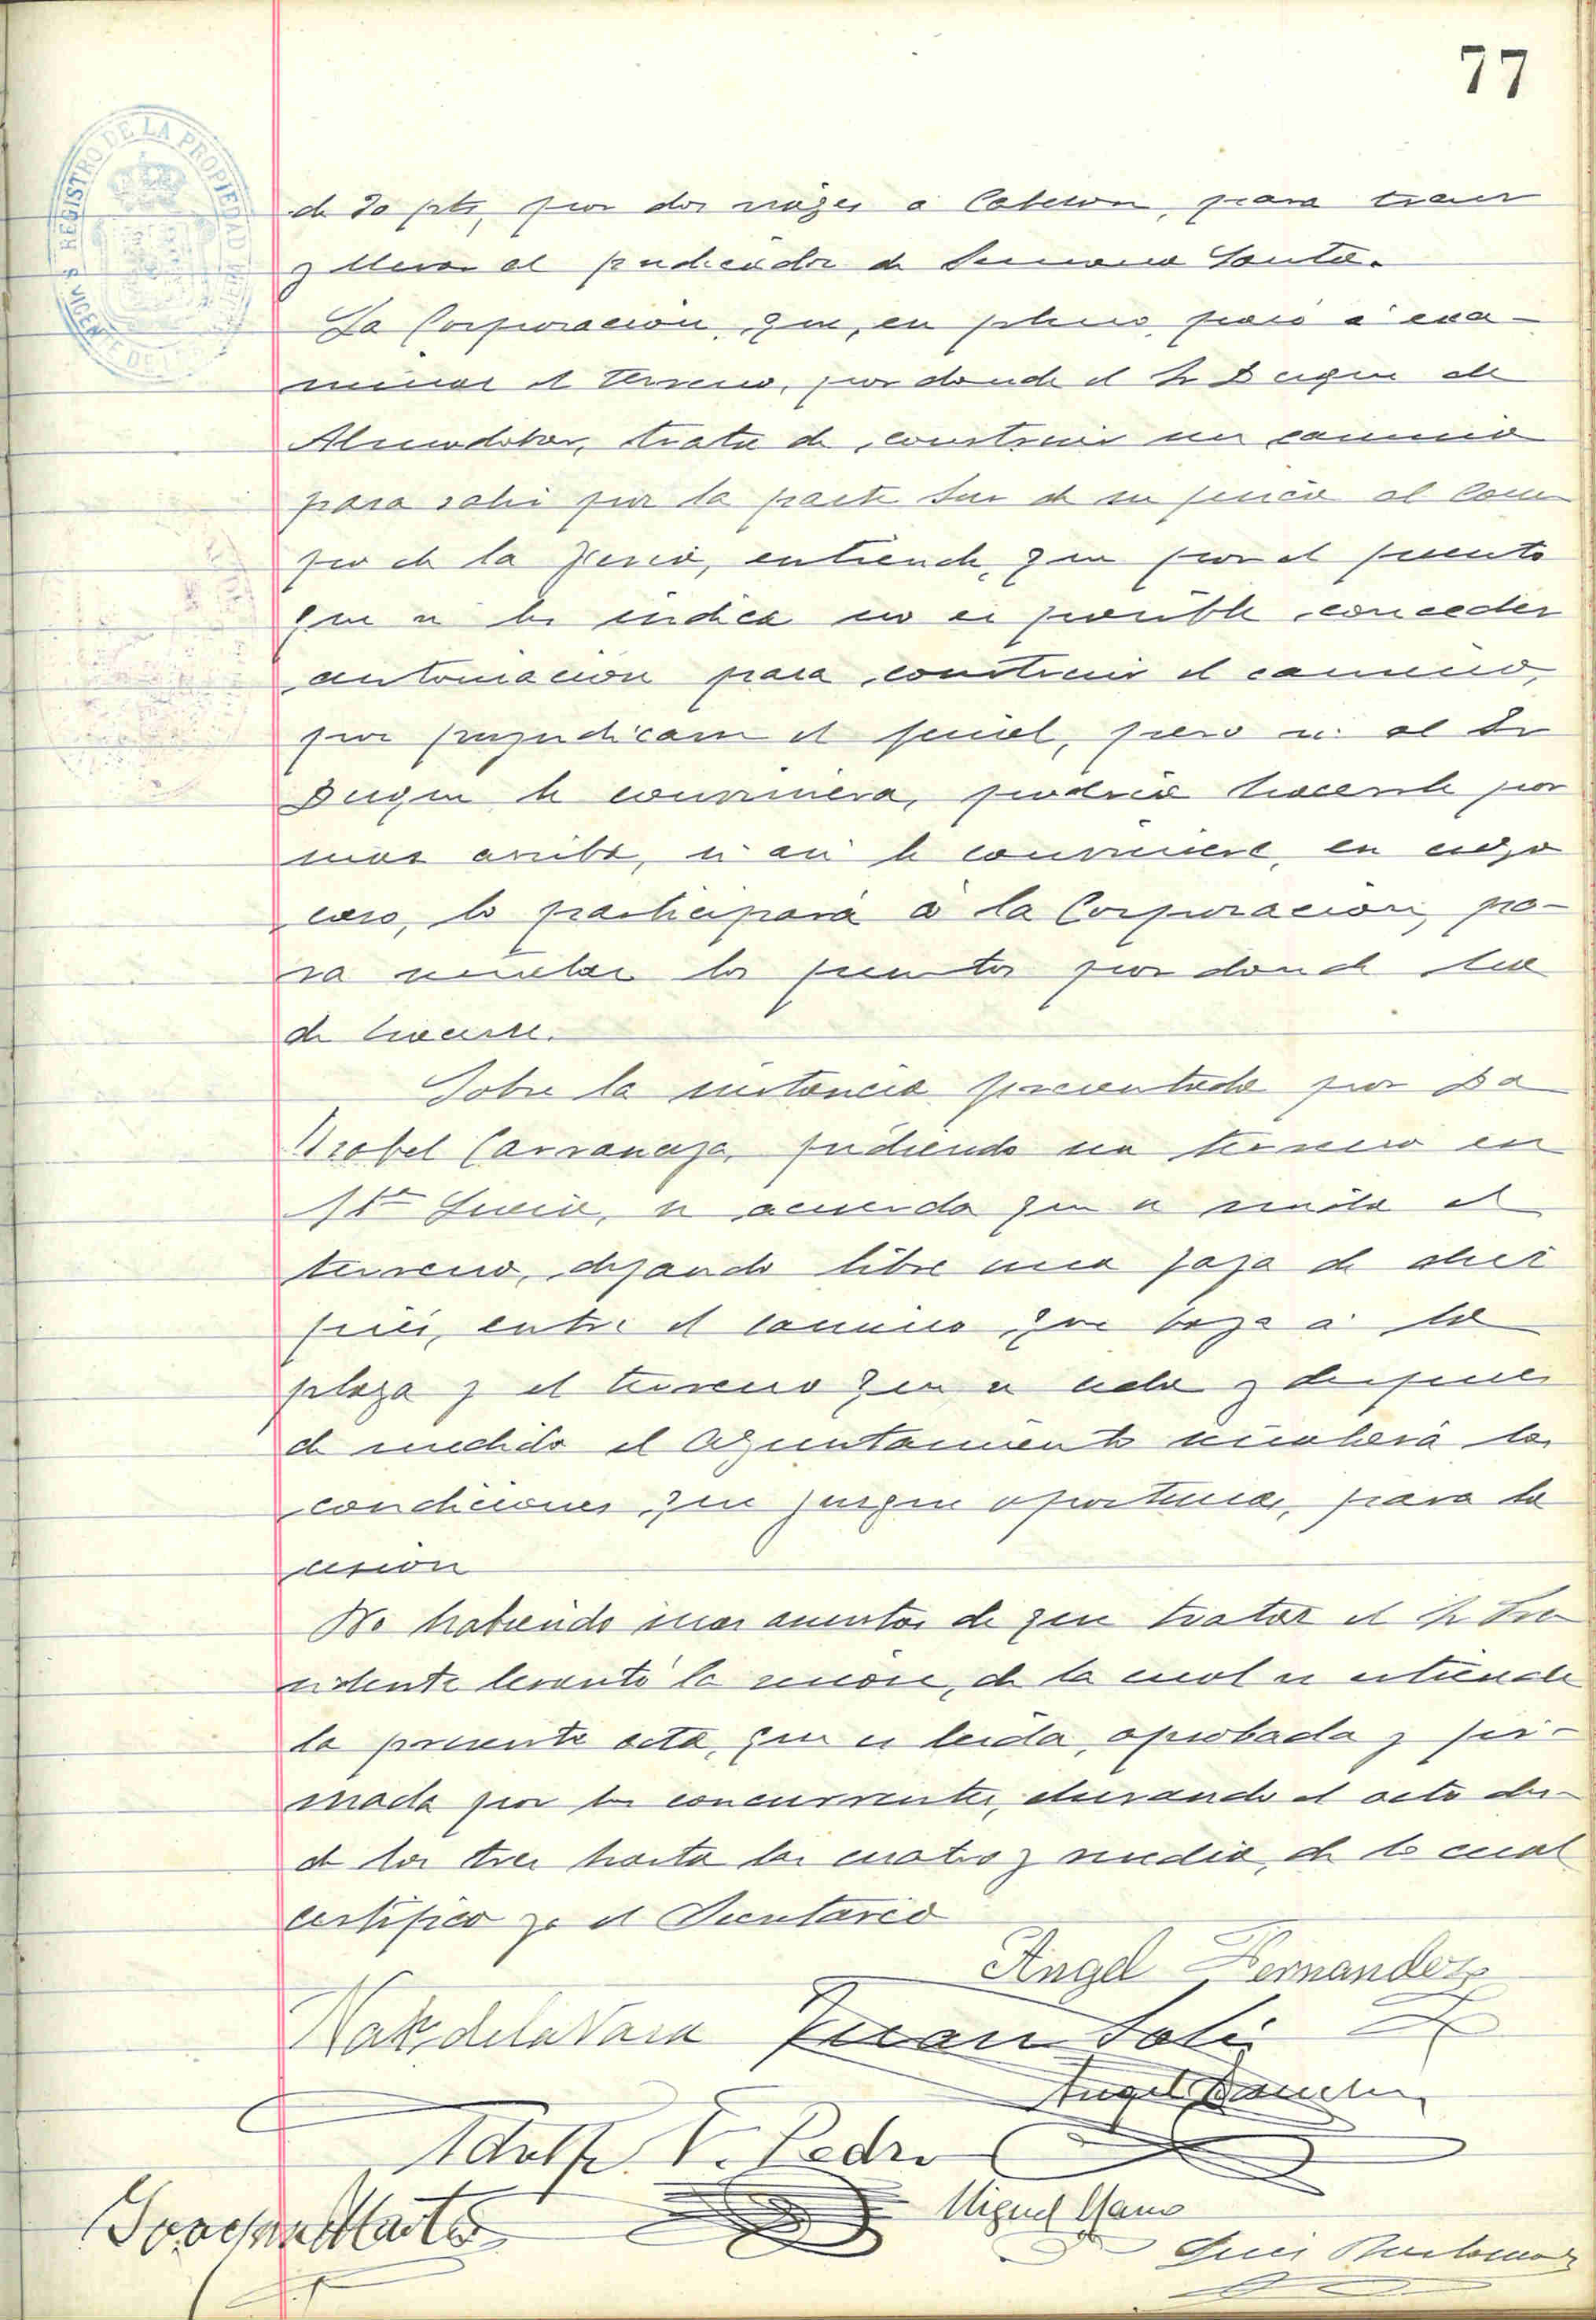 77
REGISTRO DE LA PROPIEDAD
de 20 pts, por dos viages á Cabezon, para traer
y llevar al predicador de Semana Santa.
La Corporacion, que, en pleno, pasó á exa-
minar el terreno, por donde el Sr Duque de
Almodobar, trata de construir un camino
para salir por la parte Sur de su finca al Cam
po de la Feria, entiende, que por el punto
que se les indica no es posible conceder
autorizacion para construir el camino,
por perjudicar el ferial, pero si al Sr
Duque le conviniera, podria hacerle por
mas arriba, si asi le conviniere, en cuyo
caso, lo participará á la Corporacion, pa-
ra señalar los puntos por donde ha
de hacerse.
Sobre la instancia presentada por Da
Isabel Carranceja, pidiendo un terreno en
Sta Lucia, se acuerda que se mida el
terreno, dejando libre una faja de diez
pies, entre el camino que baja á la
playa y el terreno que se ceda y despues
de medido el Ayuntamiento señalará las
condiciones que juzgue oportunas, para la
cesion
No habiendo mas asuntos de que tratar el Sr Pre
sidente levantó la sesion, de la cual se estiende
la presente acta, que es leida, aprobada y fir-
mada por los concurrentes, durando el acto des-
de las tres hasta las cuatro y media, de lo cual
certifico yo el Secretario
Angel Fernandez
Nat. de la Vara Juan Solis
Angel Sanchez
Adolfo V. Pedro
Miguel
Joaquin Martos
Luis